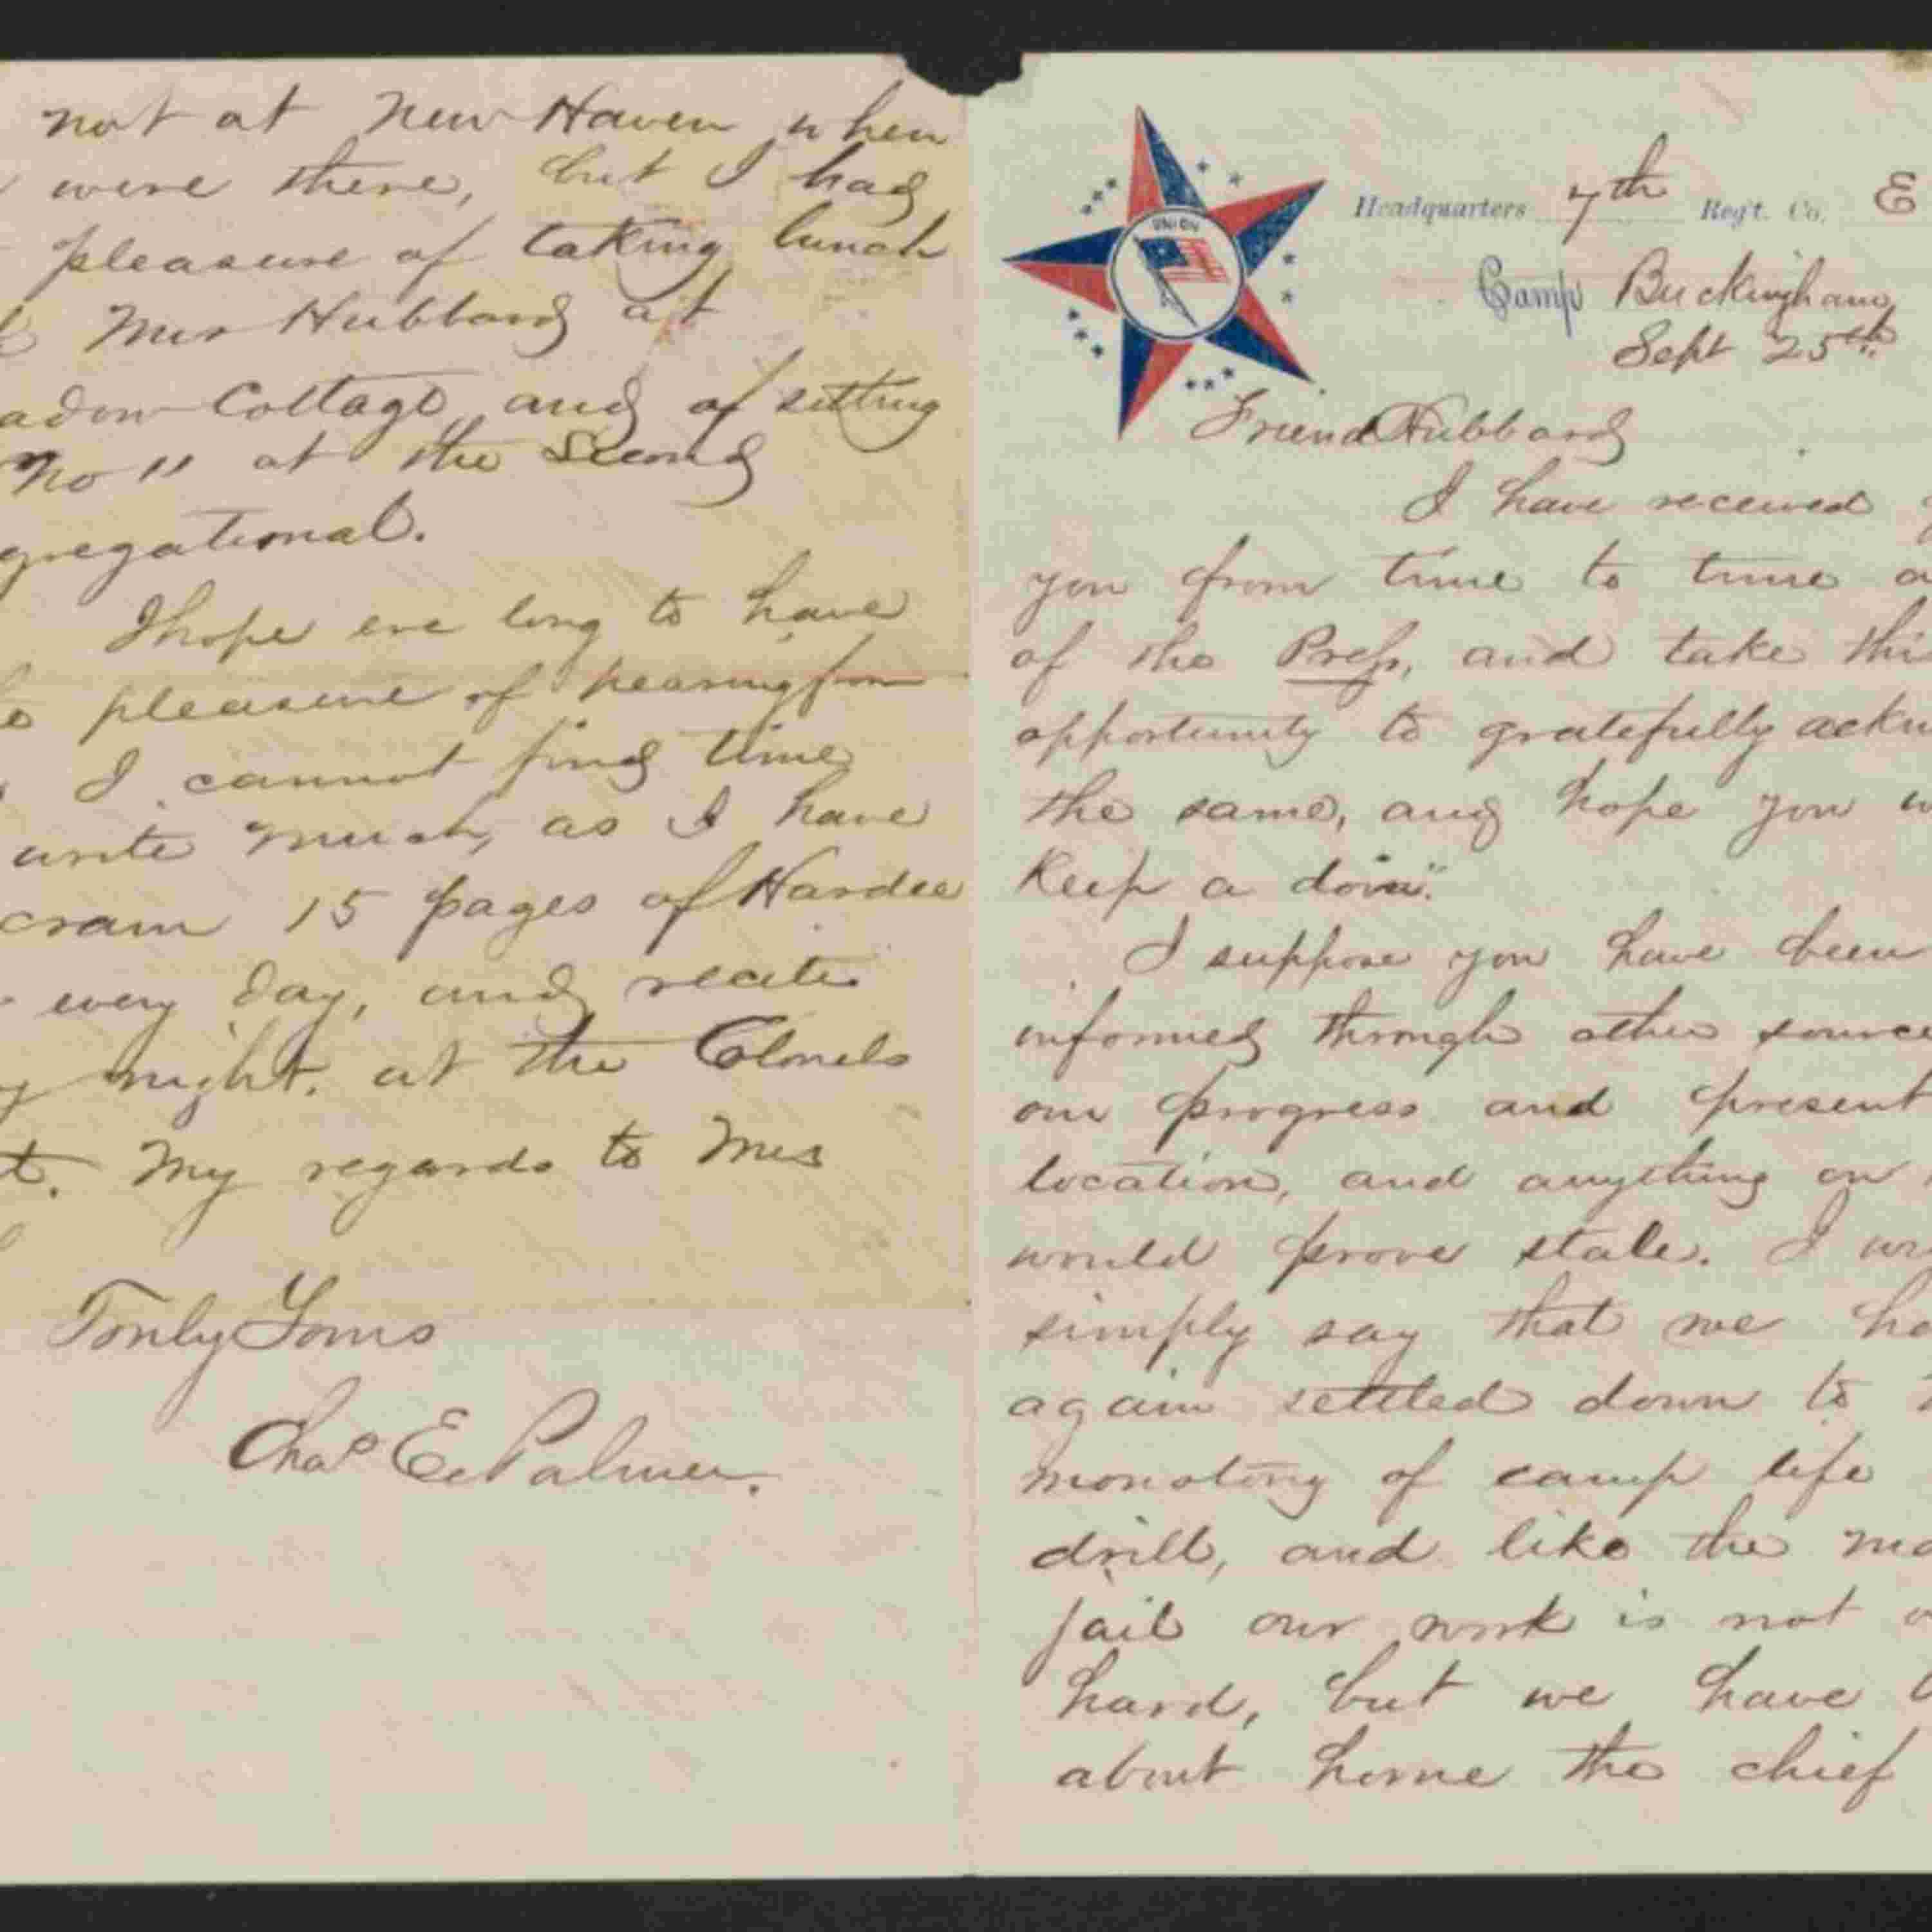 not at New Haven when
were there, but I had
pleasure of taking lunch
Mrs Hubbard at
Cottage, and of sitting
No 11 at the Second
gregational.
I hope ere long to have
pleasure of hearing from
I cannot find time
write much, as I have
cram 15 pages of Hardee
every day, and recite
night. at the Colonels
My regards to Mrs
Truly Yours
Chas E. Palmer.
UNION
Headquarters 7th Reg't. Co. E
Camp Buckingham
Sept 25th
Friend Hubbard
I have received
you from time to time
of the Press, and take thi
opportunity to gratefully ackn
the same, and hope you w
Keep a doin".
I suppose you have been
informed through other source
our progress and present
location, and anything on
would prove stale. I
simply say that we ha
again settled down to
monotony of camp life
drill, and like the
jail our work is not
hard, but we have
about home the chief